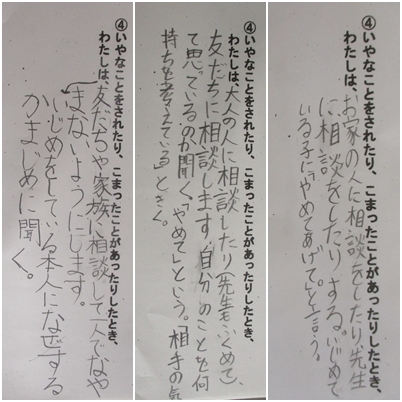 ④いやなことをされたり、こまったことがあったりしたとき、
わたしは、友だちや家族に相談して一人でなや
まないようにします。
いじめをしている本人になぜする
かまじめに聞く。
④いやなことをされたり、こまったことがあったりしたとき、
わたしは、大人の人に相談したり(先生もふくめて)、
友だちに相談します。自分のことを何
て思っているのか聞く。「やめて」という。「相手の気
持ちを考えている」ときく。
④いやなことをされたり、こまったことがあったりしたとき、
わたしは、お家の人に相談をしたり先生
に相談をしたりする。いじめて
いる子に「やめてあげて。」と言う。